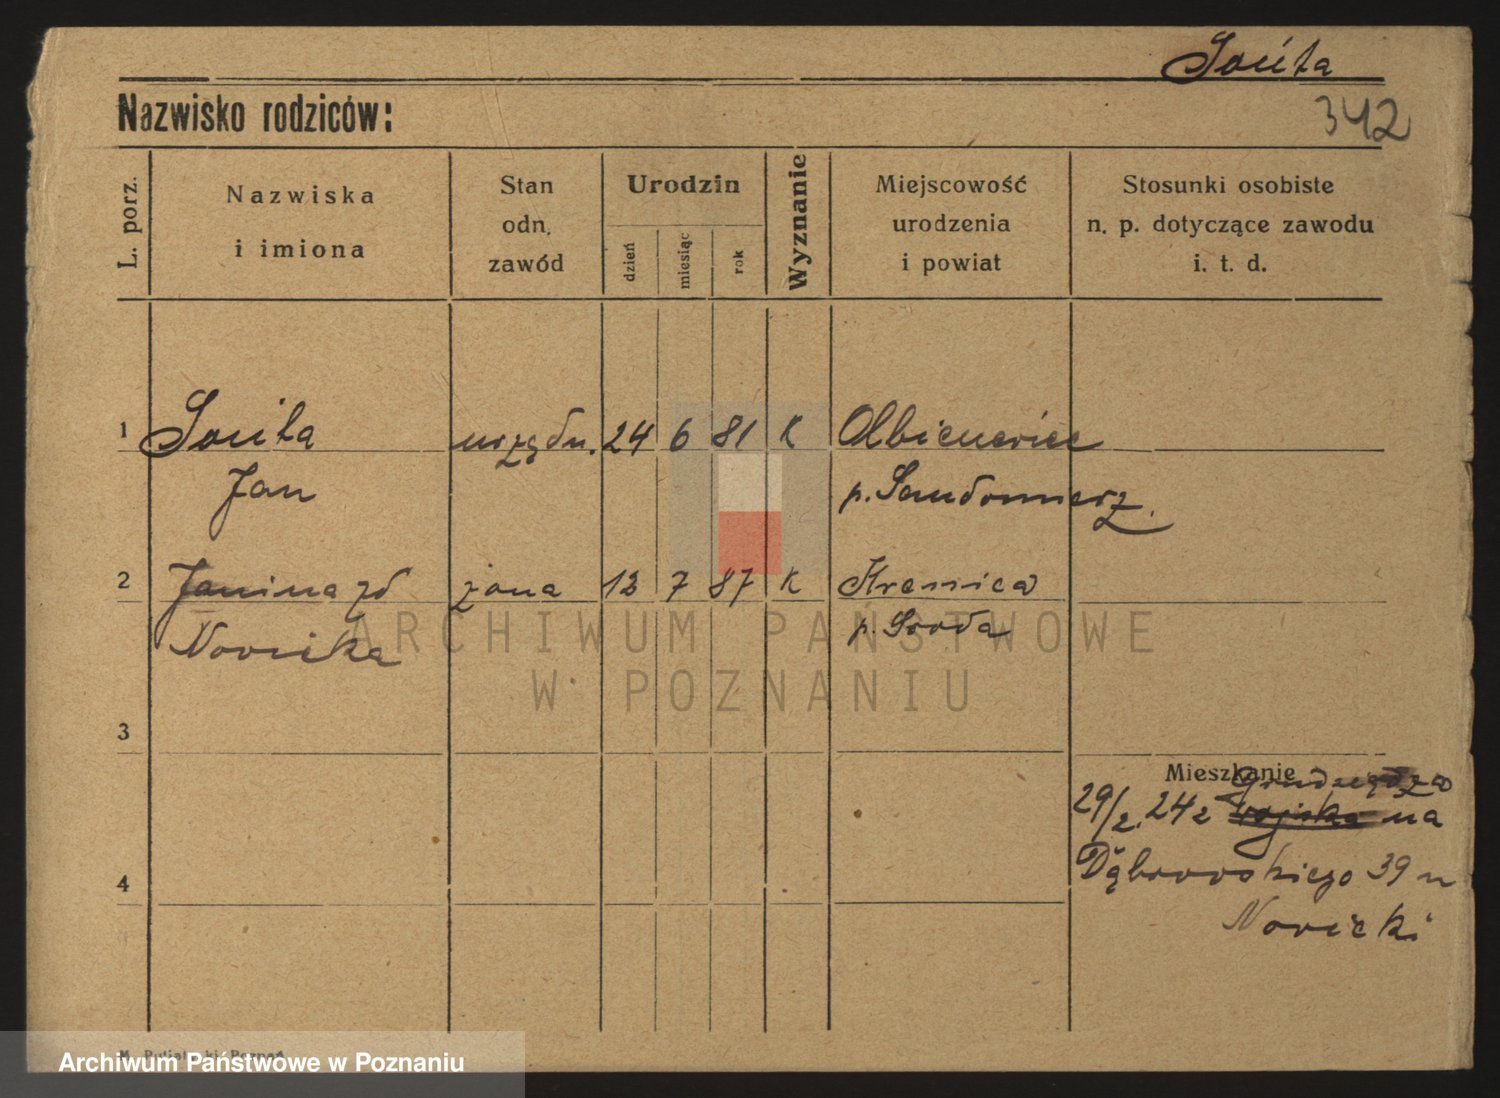 Souita
342
Nazwisko rodziców:
L. porz.
Nazwiska
i imiona
Stan
odn.
zawód
Urodzin
dzień
miesiąc
rok
Wyznanie
Miejscowość
urodzenia
i powiat
Stosunki osobiste
n. p. dotyczące zawodu
i. t. d.
1 Souita urzędn. 24 6 81 K
Jan p. Sandomierz.
2 Janina zd żona 7 87 K
p. Środa
3
Mieszkanie
29/2. 24 z Grudziądza
na
Dąbrowskiego 39 u
4
Nowicki
ARCHIWUM PAŃSTWOWE
W POZNANIU
Archiwum Państwowe w Poznaniu